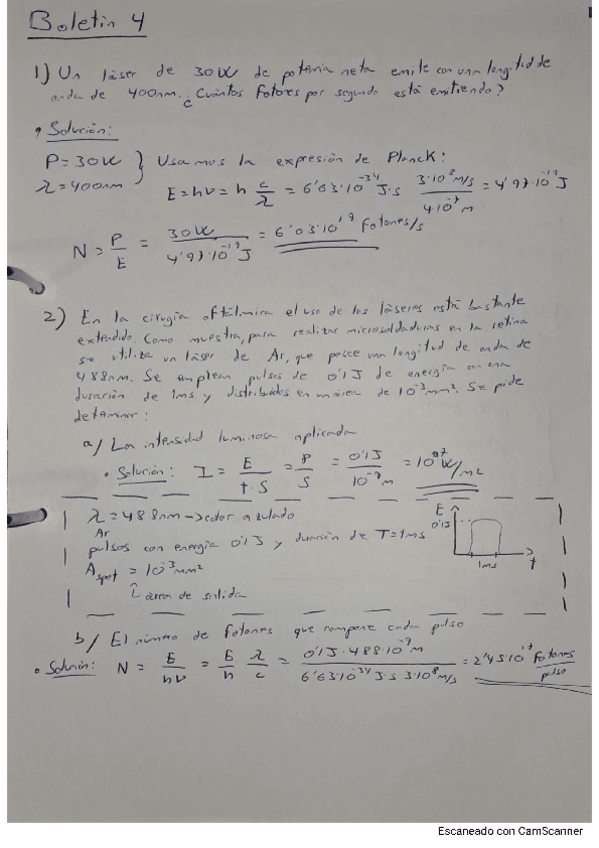 Boletín 4
1) Un láser de 30W de potencia neta emite con una longitud de
onda de 400nm. ¿Cuántos fotones por segundo está emitiendo?
• Solución:
P = 30W } Usamos la expresión de Planck:
λ = 400nm
E = hν = h c/λ = 6'63·10^-34 J·s 3·10^8 m/s / 4·10^-7 m = 4'97·10^-19 J
N = P/E = 30W / 4'97·10^-19 J = 6'03·10^19 fotones/s
2) En la cirugía oftálmica el uso de los láseres está bastante
extendido. Como muestra, para realizar microsoldaduras en la retina
se utiliza un láser de Ar, que posee una longitud de onda de
488nm. Se emplean pulsos de 0'1J de energía con una
duración de 1ms y distribuidos en un área de 10^-3 mm². Se pide
determinar:
a/ La intensidad luminosa aplicada
• Solución: I = E/t·S = P/S = 0'1J / 10^-9 m = 10^7 W/m²
λ = 488nm → color azulado
Ar
pulsos con energía 0'1J y duración de T = 1ms
A spot = 10^-3 mm²
área de salida
E
0'1J
1ms t
b/ El número de fotones que compone cada pulso
• Solución: N = E/hν = E/h λ/c = 0'1J · 488·10^-9 m / 6'63·10^-34 J·s · 3·10^8 m/s = 2'45·10^17 fotones/pulso
Escaneado con CamScanner